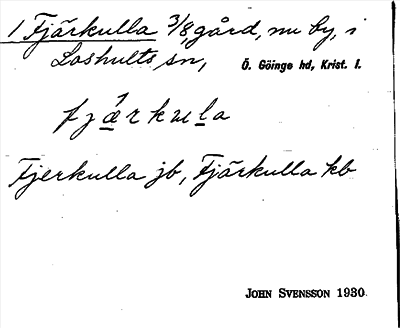 1 Fjärkulla 3/8, gård, nu by, i
Loshults sn, Ö. Göinge hd, Krist. l.
fjä́rkula
Fjerkulla jb, Fjärkulla kb
JOHN SVENSSON 1930.